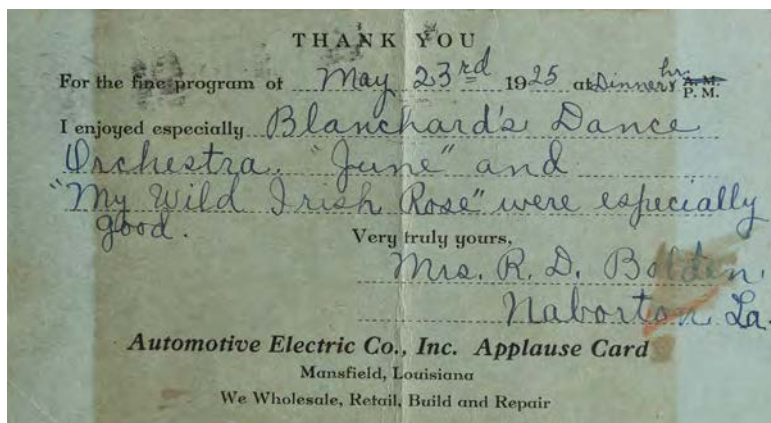 THANK YOU
For the fine program of May 23rd 1925 at Dinner hr. A.M.
P.M.
I enjoyed especially Blanchard's Dance
Orchestra. "June" and
"My Wild Irish Rose" were especially
good.
Very truly yours,
Mrs. R. D. Bolden,
Naborton, La.
Automotive Electric Co., Inc. Applause Card
Mansfield, Louisiana
We Wholesale, Retail, Build and Repair